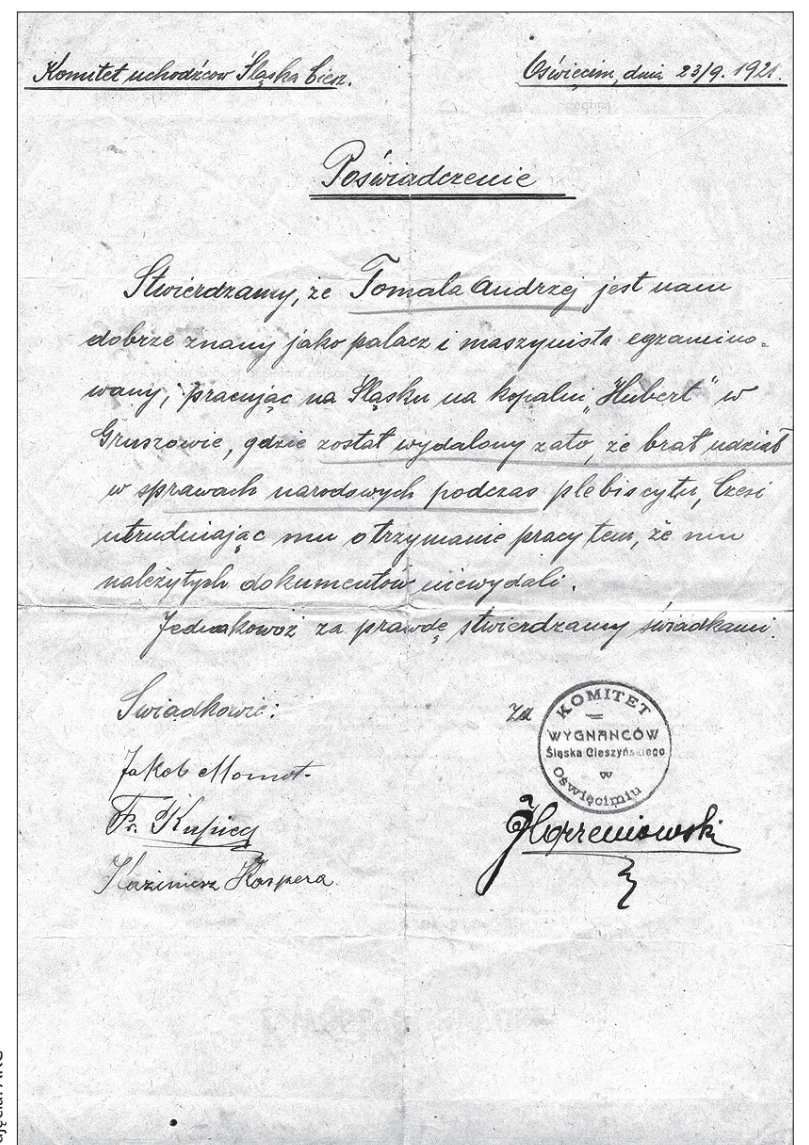 Komitet uchodźcow Śląska Ciesz.
Oświęcim, dnia 23/9. 1921.
Poświadczenie
Stwierdzamy, że Tomala Andrzej jest nam
dobrze znany jako palacz i maszynista egzamino-
wany, pracując na Śląsku na kopalni „Hubert" w
Gruszowie, gdzie został wydalony zato, że brał udział
w sprawach narodowych podczas plebiscytu, Czesi
utrudniając mu otrzymanie pracy tem, że mu
należytych dokumentów niewydali.
Jednakowoż za prawdę stwierdzamy świadkami.
Świadkowie:
Jakób Momot.
Fr. Kupiec
Kazimierz Kaspera
Za
KOMITET
WYGNAŃCÓW
Śląska Cieszyńskiego
w
Oświęcimiu
Korzeniowski
ARC